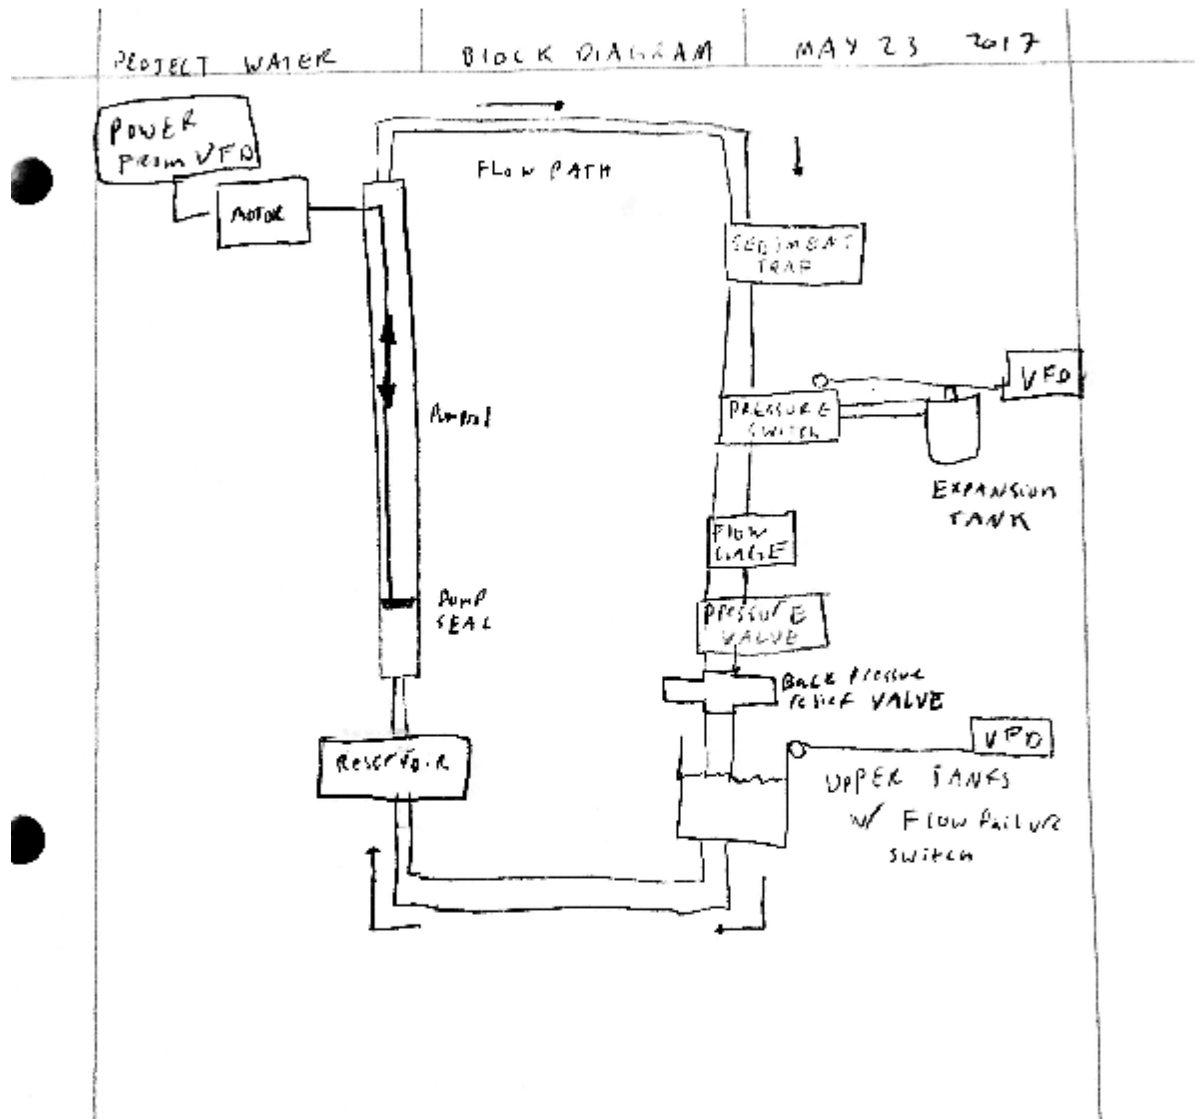 PROJECT WATER
BLOCK DIAGRAM
MAY 23 2017
POWER
FROM VFD
MOTOR
FLOW PATH
SEDIMENT
TRAP
VFD
PRESSURE
SWITCH
EXPANSION
TANK
Pumprod
FLOW
GAGE
PUMP
SEAL
PRESSURE
VALVE
Back Pressure
relief VALVE
RESERVOIR
VFD
UPPER TANKS
w/ FLOW Failure
switch